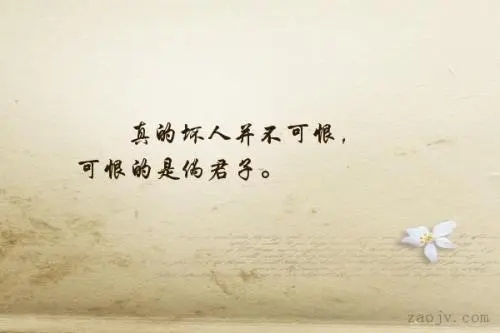 真的坏人并不可恨，
可恨的是伪君子。
zaojv.com